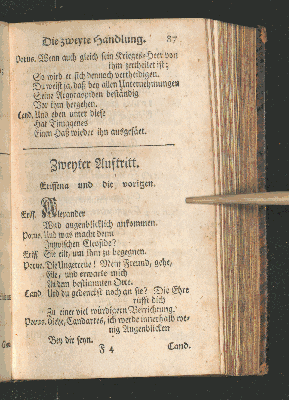 Die zweyte Handlung. 87
Porus. Wenn auch gleich sein Krieges-Heer von
ihm zertheilet ist;
So wird er sich dennoch vertheidigen.
Du weist ja, daß bey allen Unternehmungen
Seine Argyraspiden beständig
Vor ihm hergehen.
Cand. Und eben unter diese
Hat Timagenes
Einen Haß wieder ihn ausgesäet.
Zweyter Auftritt.
Erissena und die vorigen.
Eriss. Alexander
Wird augenblicklich ankommen.
Porus. Und was macht denn
Inzwischen Cleofide?
Eriss. Sie eilt, um ihm zu begegnen.
Porus. Die Ungetreue! Mein Freund, gehe,
Eile, und erwarte mich
An dem bestimmten Orte.
Cand. Und du gedenckst noch an sie? Die Ehre
rufft dich
Zu einer viel würdigern Verrichtung.
Porus. Gehe, Candartes, ich werde innerhalb we-
nig Augenblicken
Bey dir seyn.
F 4 Cand.